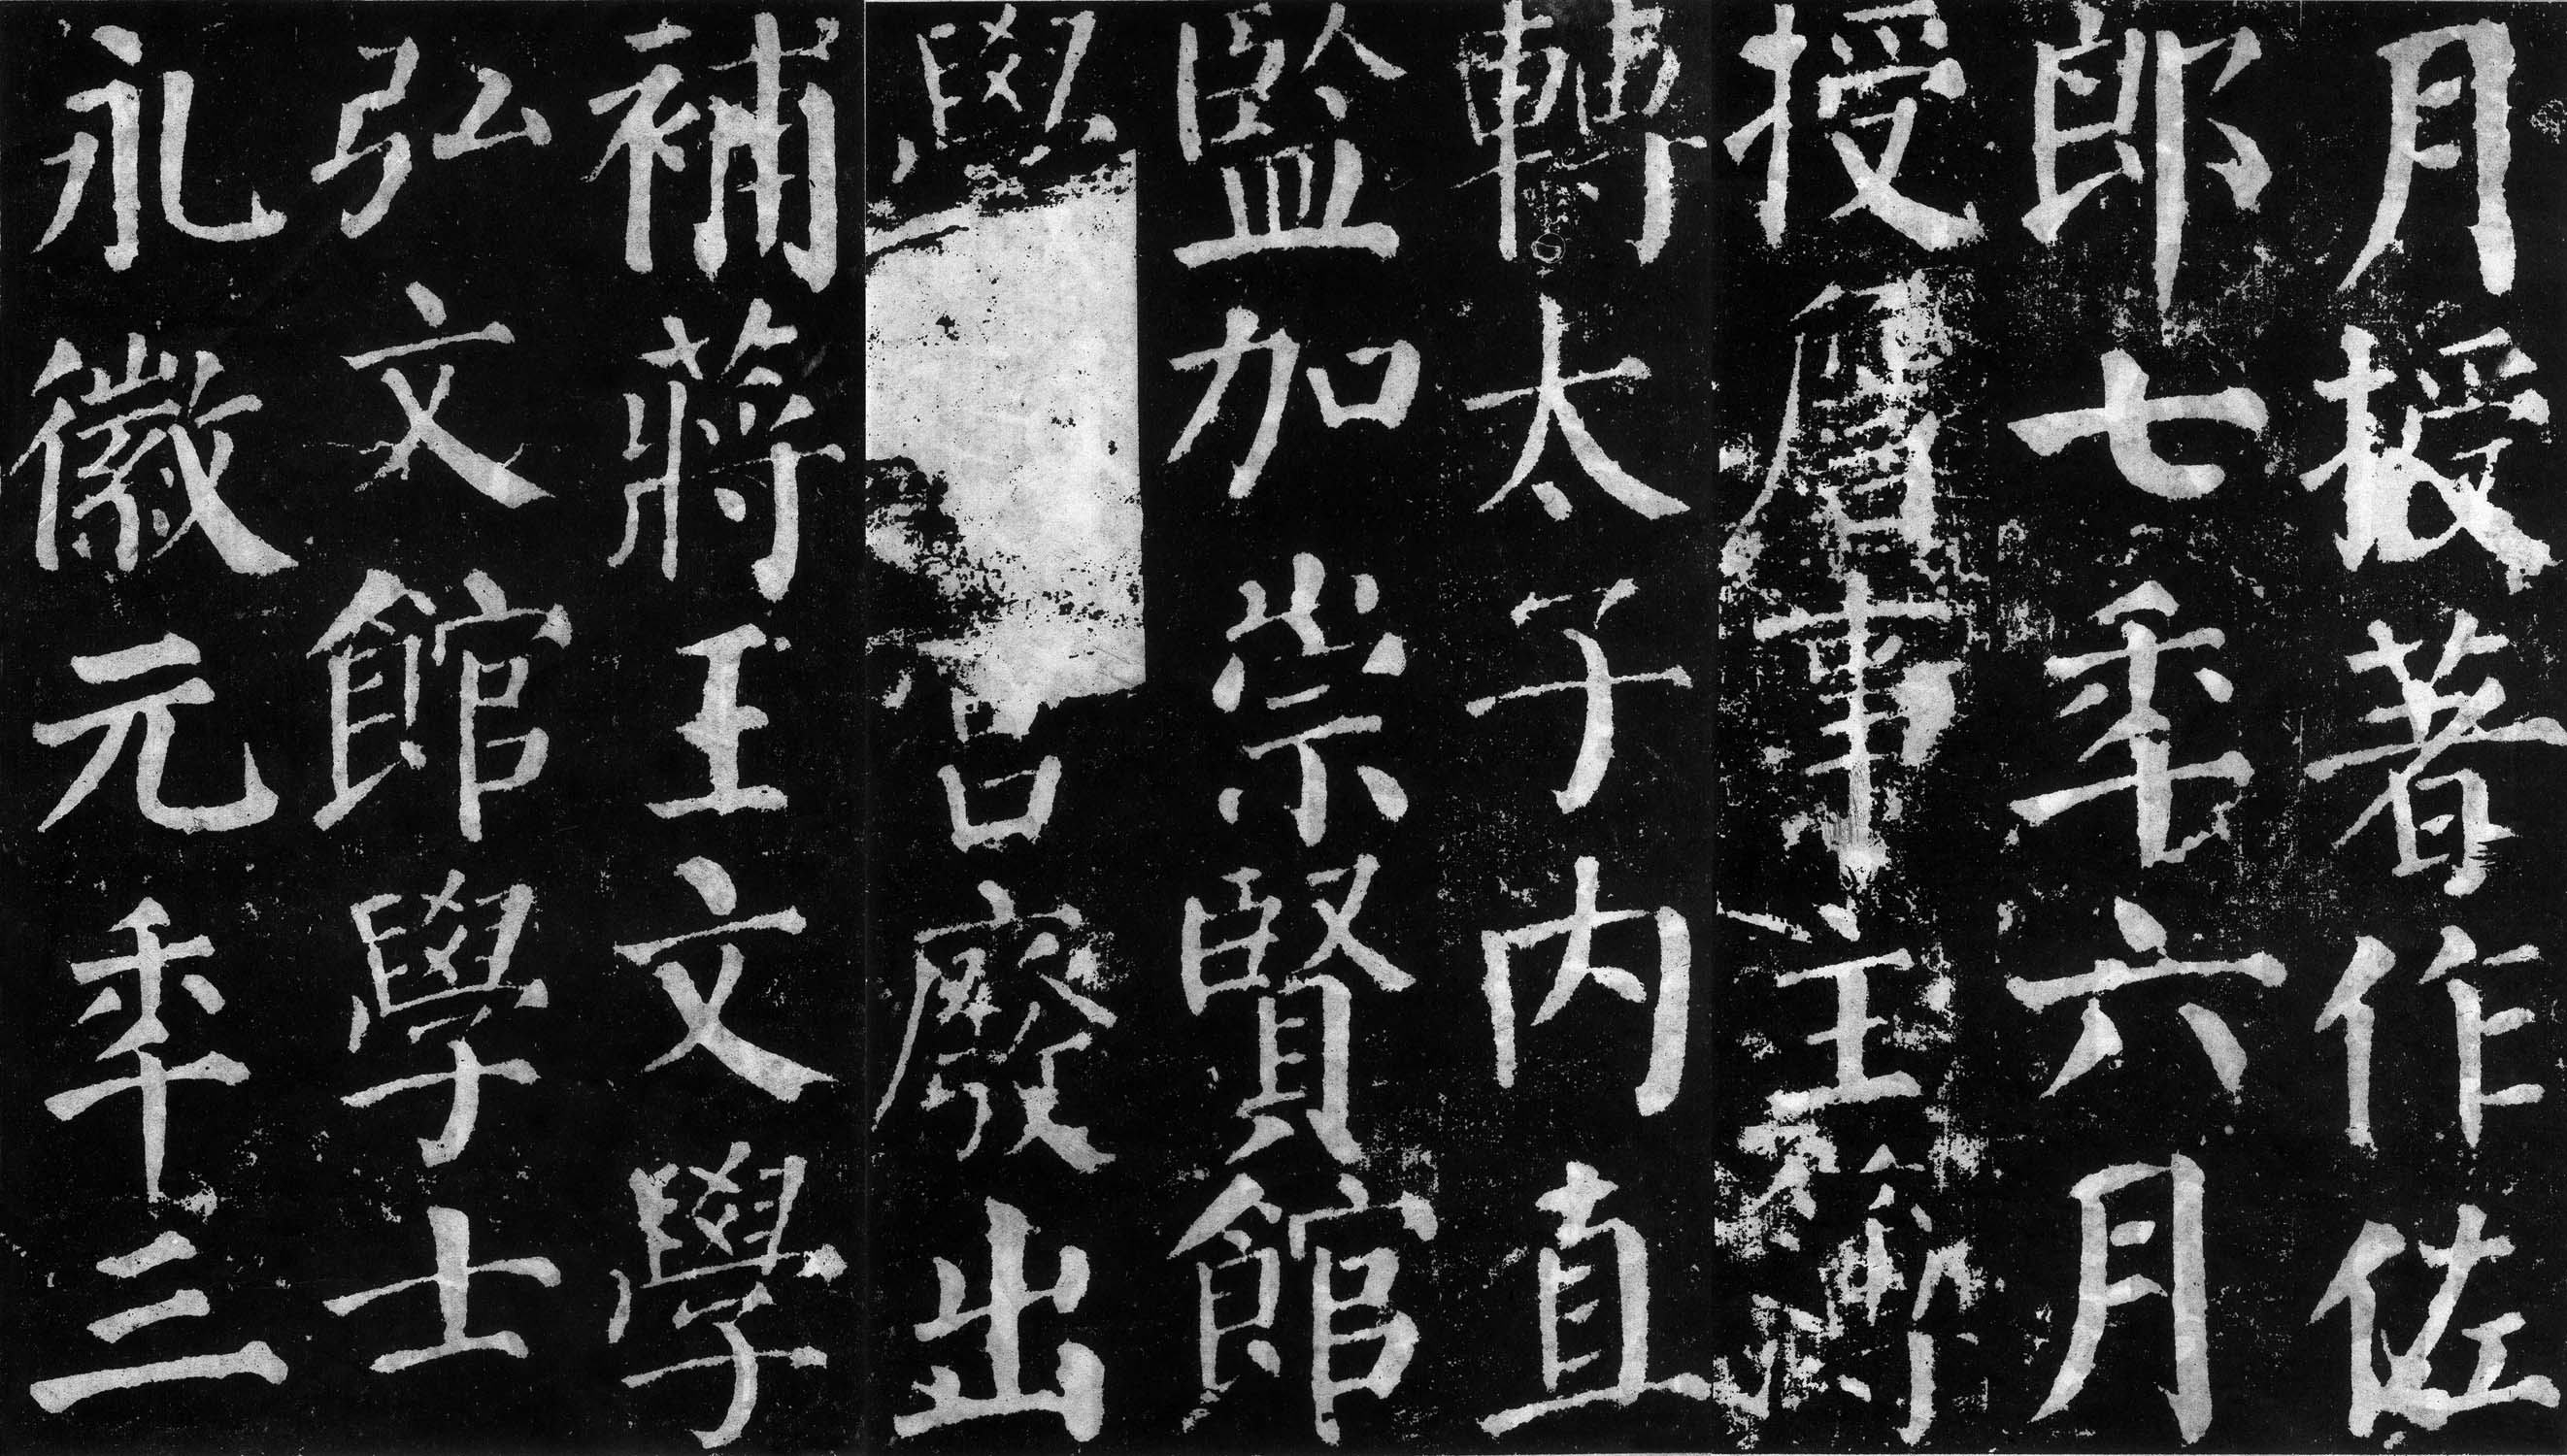 月授著作佐
郎七年六月
授詹事主簿
轉太子内直
監加崇賢館
學宮廢出
補蔣王文學
弘文館學士
永徽元年三